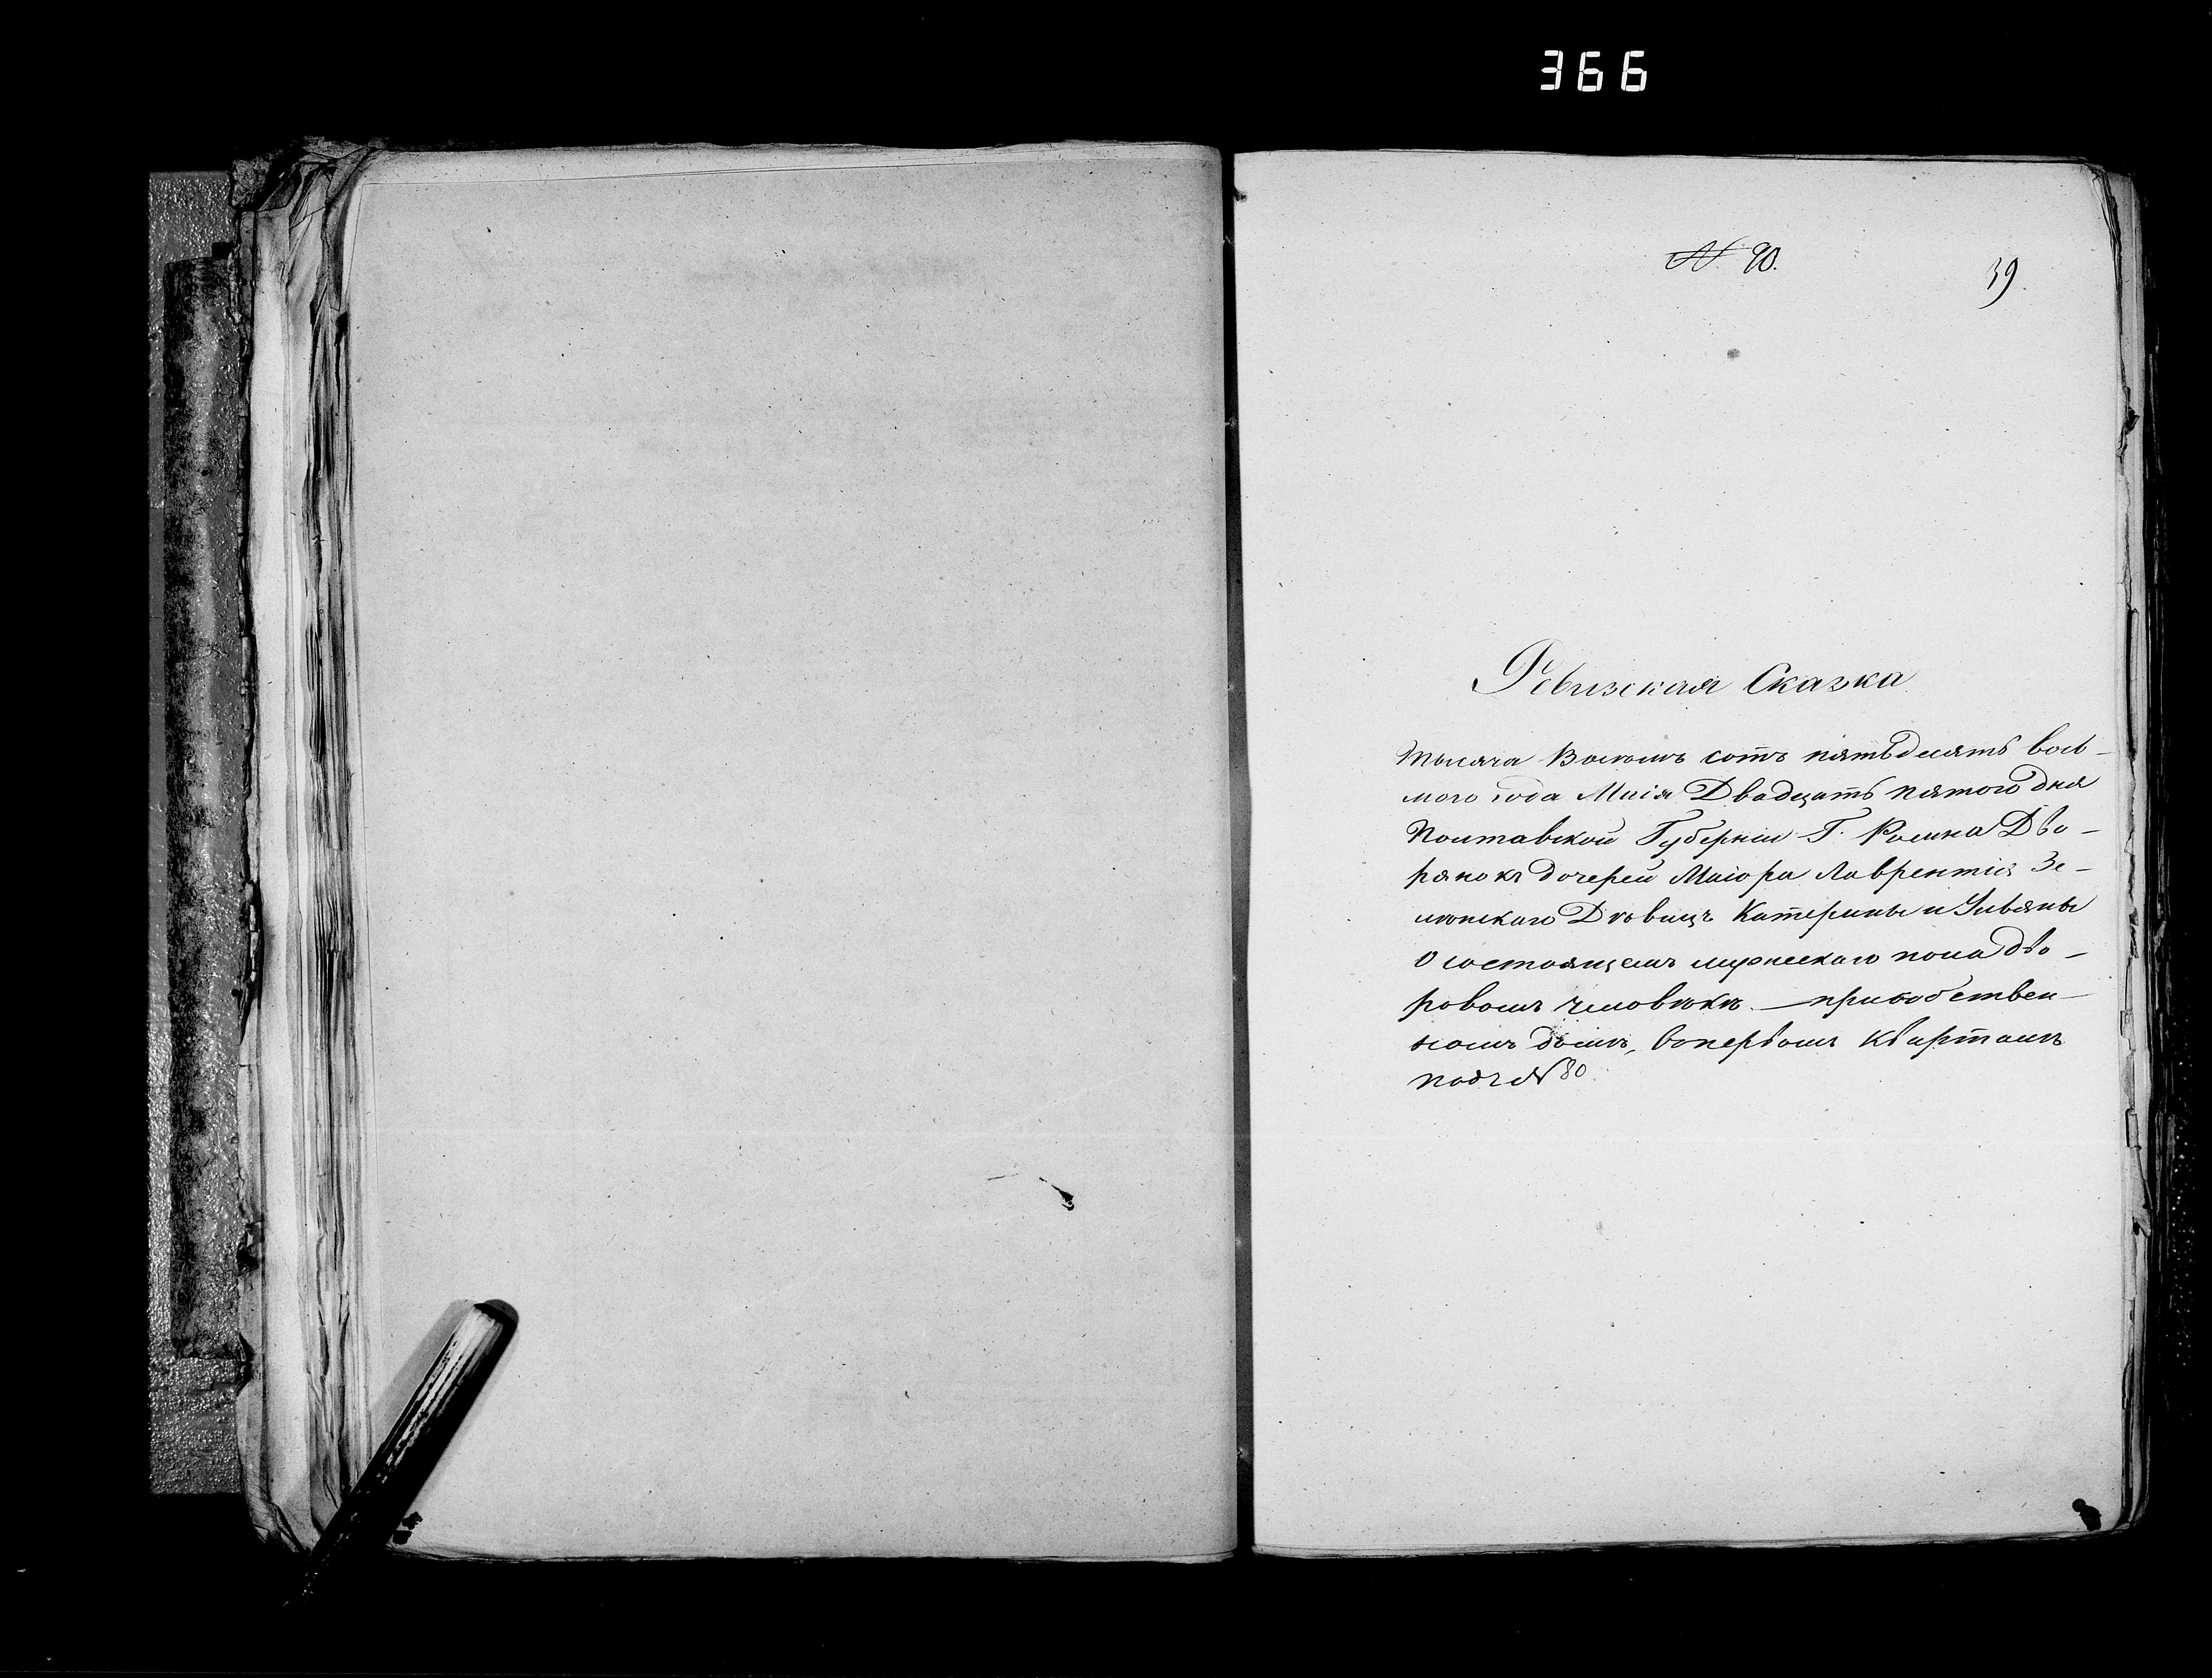 366
№ 90.
39.
Ревизская Сказка
тысяча Восемь сотъ пятьдесятъ вось-
мого года Маія Двадцать пятого дня
Полтавской Губерніи Г. Ромна Дво-
рянокъ дочерей Маіора Лаврентія
Дѣвицъ Катерины и Ульяны
о состоящемъ мужескаго пола дво-
ровомъ человѣкѣ — присобствен-
номъ домѣ, вопервомъ Кварталѣ
подъ № 80